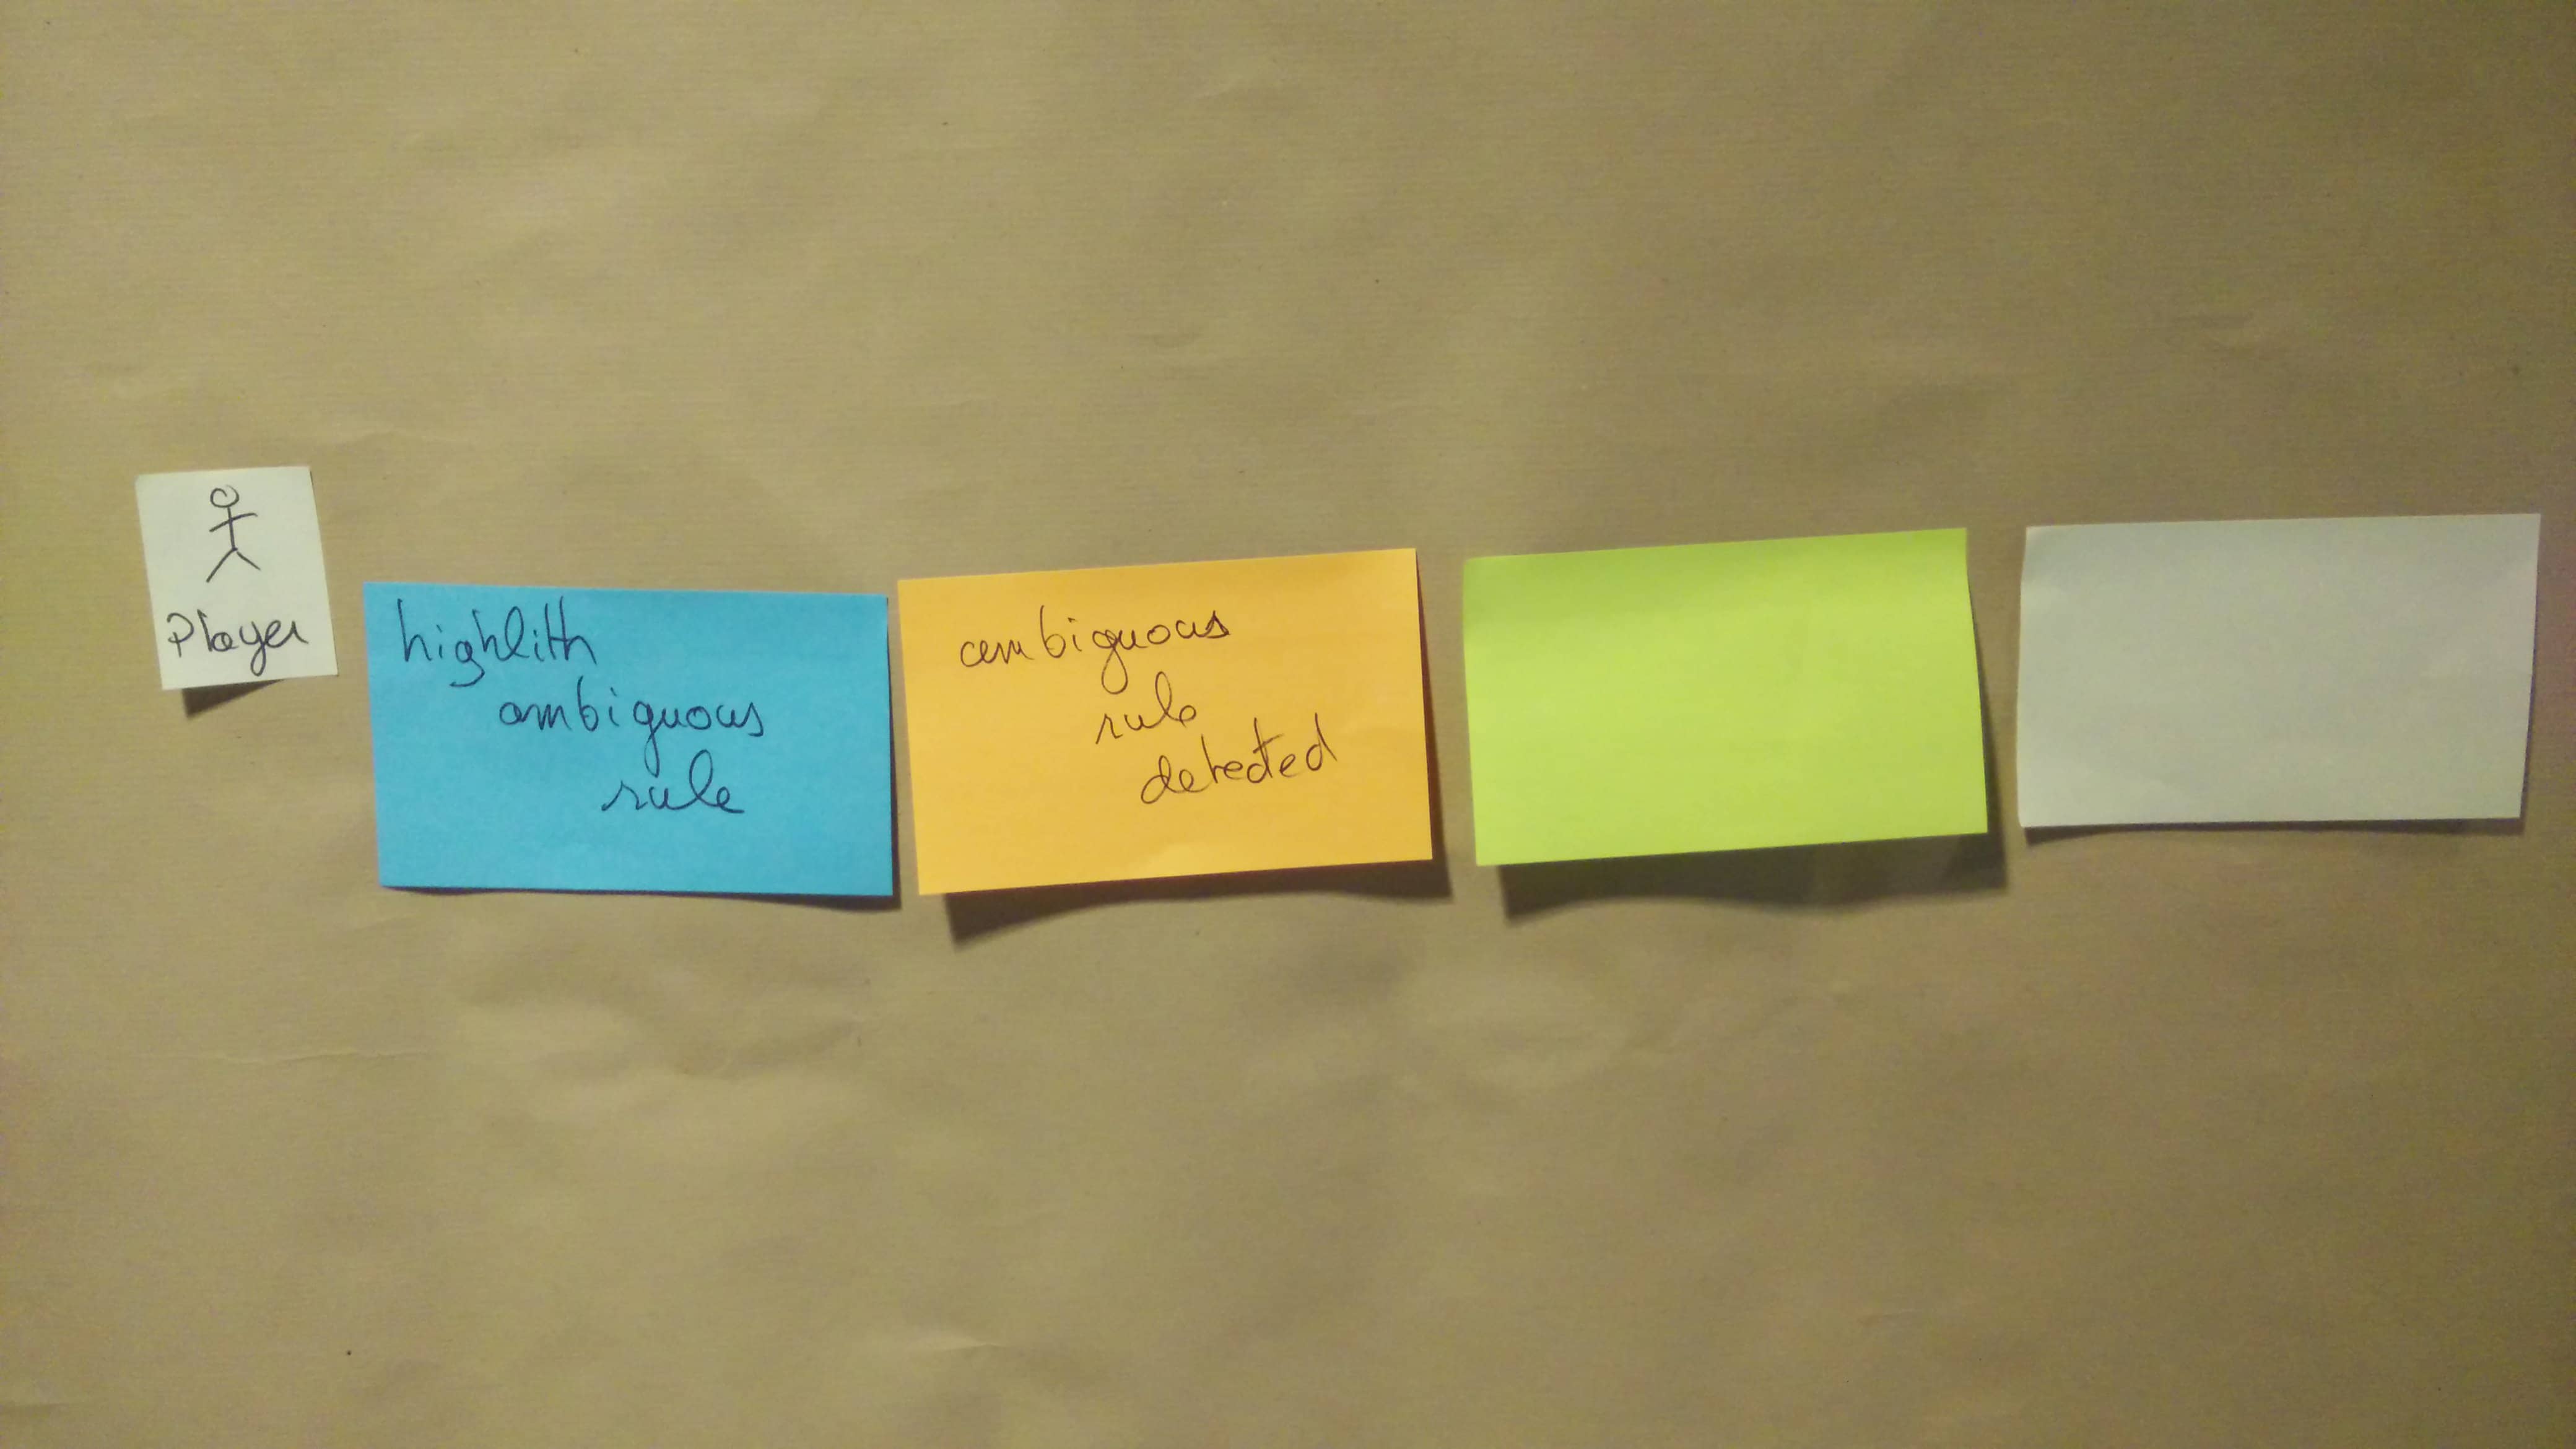 Player
highlith
ambiguous
rule
ambiguous
rule
detected